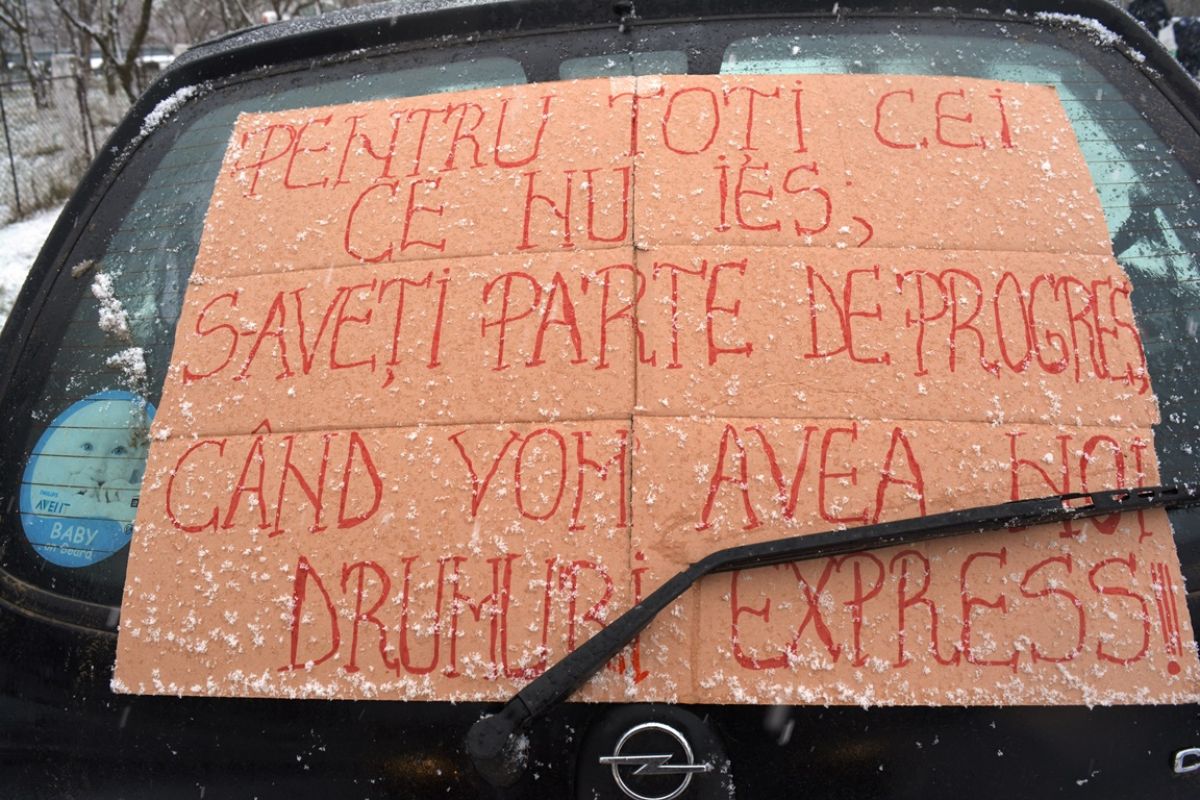 PENTRU TOȚI CEI
CE NU IES,
SAVEȚI PARTE DE PROGRES,
CÂND VOM AVEA NOI
DRUMURI EXPRESS!!!
PHILIPS
AVENT
BABY
on Board